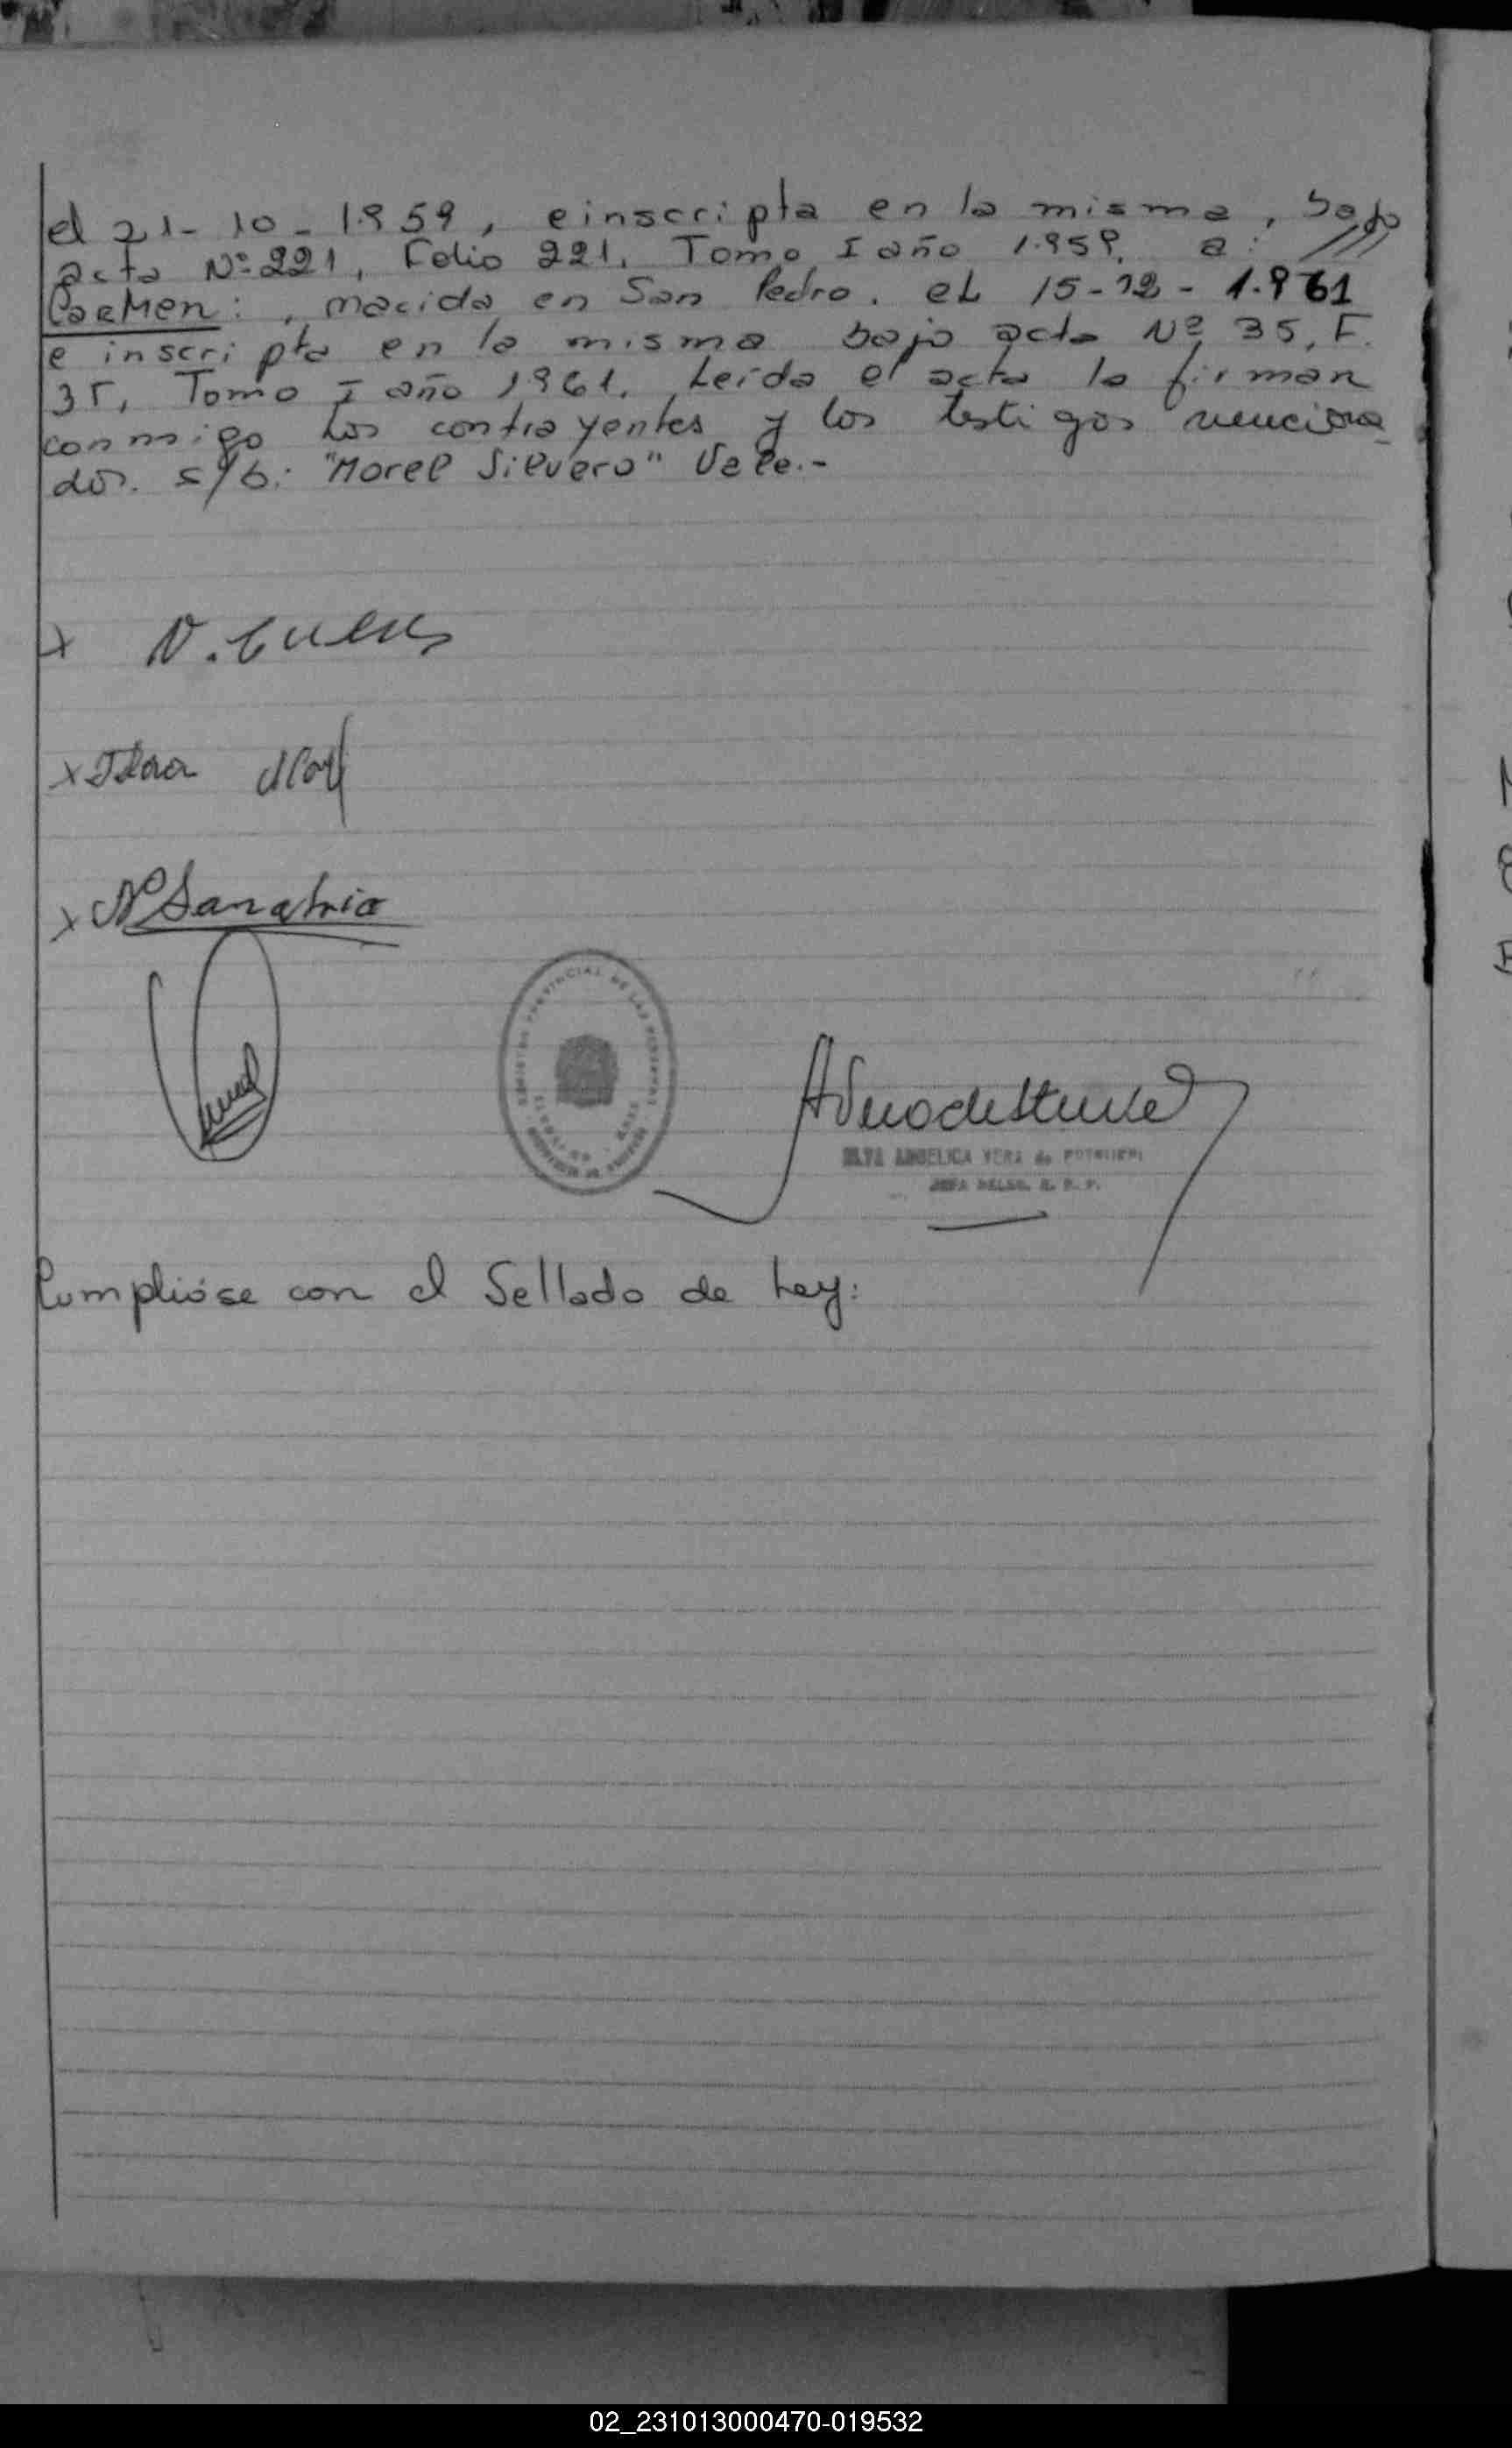 el 21-10-1.959, e inscripta en la misma, bajo
acta Nº 221, Folio 221, Tomo I año 1.959, a: ///
Carmen: , nacida en San Pedro, el 15-12-1.961
e inscripta en la misma bajo acta Nº 35, F.
35, Tomo I año 1961. Leída el acta la firman
conmigo los contrayentes y los testigos menciona
dos. s/b: "Morel Silvero" Vale.-
x
x
x
ANGELICA VERA de
JEFA DELEG. R. P. P.
Cumplióse con el Sellado de Ley:
02_231013000470-019532